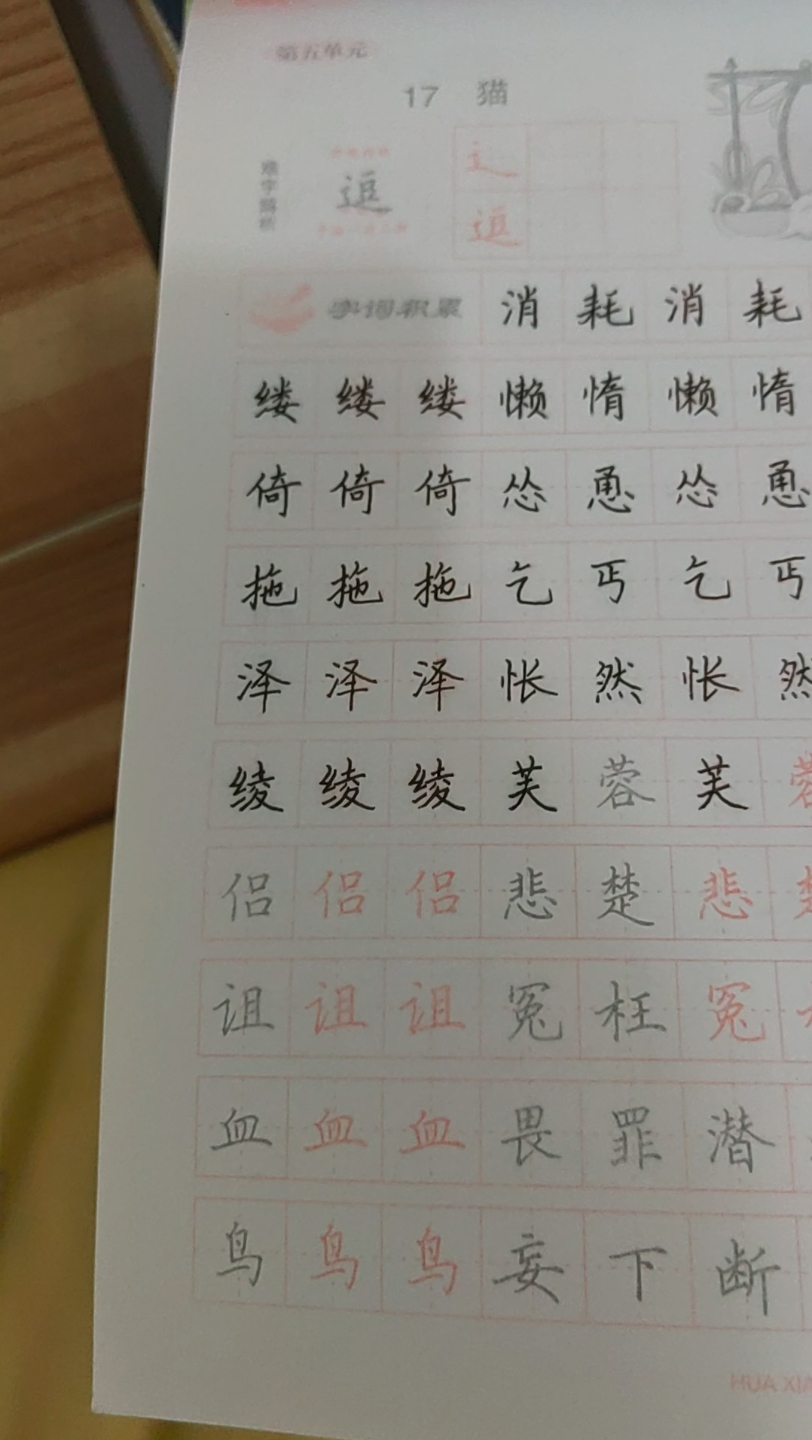 第五单元
17 猫
难字解析
逗
辶
逗
字词积累 消 耗 消 耗
缕 缕 缕 懒 惰 懒 惰
倚 倚 倚 怂 恿 怂 恿
拖 拖 拖 乞 丐 乞 丐
泽 泽 泽 怅 然 怅 然
绫 绫 绫 芙 蓉 芙 蓉
侣 侣 侣 悲 楚 悲 楚
诅 诅 诅 冤 枉 冤
血 血 血 畏 罪 潜
鸟 鸟 鸟 妄 下 断
HUA XIA